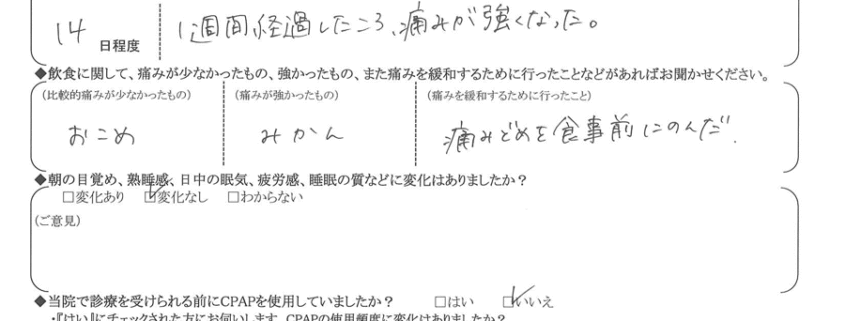 14 日程度 1週間経過したころ、痛みが強くなった。
◆飲食に関して、痛みが少なかったもの、強かったもの、また痛みを緩和するために行ったことなどがあればお聞かせください。
(比較的痛みが少なかったもの) (痛みが強かったもの) (痛みを緩和するために行ったこと)
おこめ みかん 痛みどめを食事前にのんだ.
◆朝の目覚め、熟睡感、日中の眠気、疲労感、睡眠の質などに変化はありましたか?
□変化あり ☑変化なし □わからない
(ご意見)
◆当院で診療を受けられる前にCPAPを使用していましたか? □はい ☑いいえ
・『はい』にチェックされた方にお伺いします。CPAPの使用頻度に変化はありましたか?